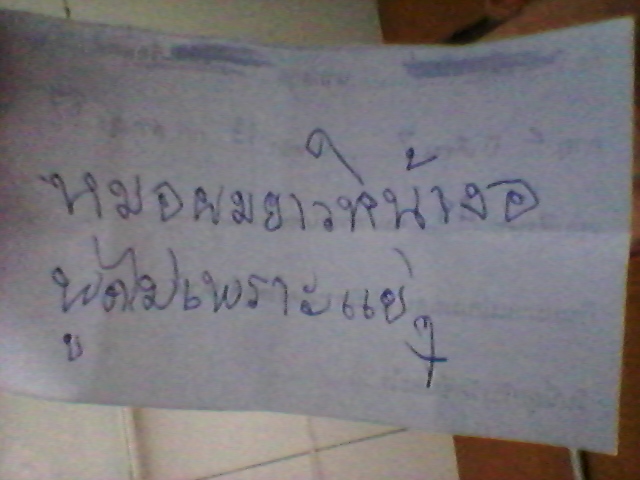 หมอผมยาวหน้างอ
พูดไม่เพราะแย่ๆ